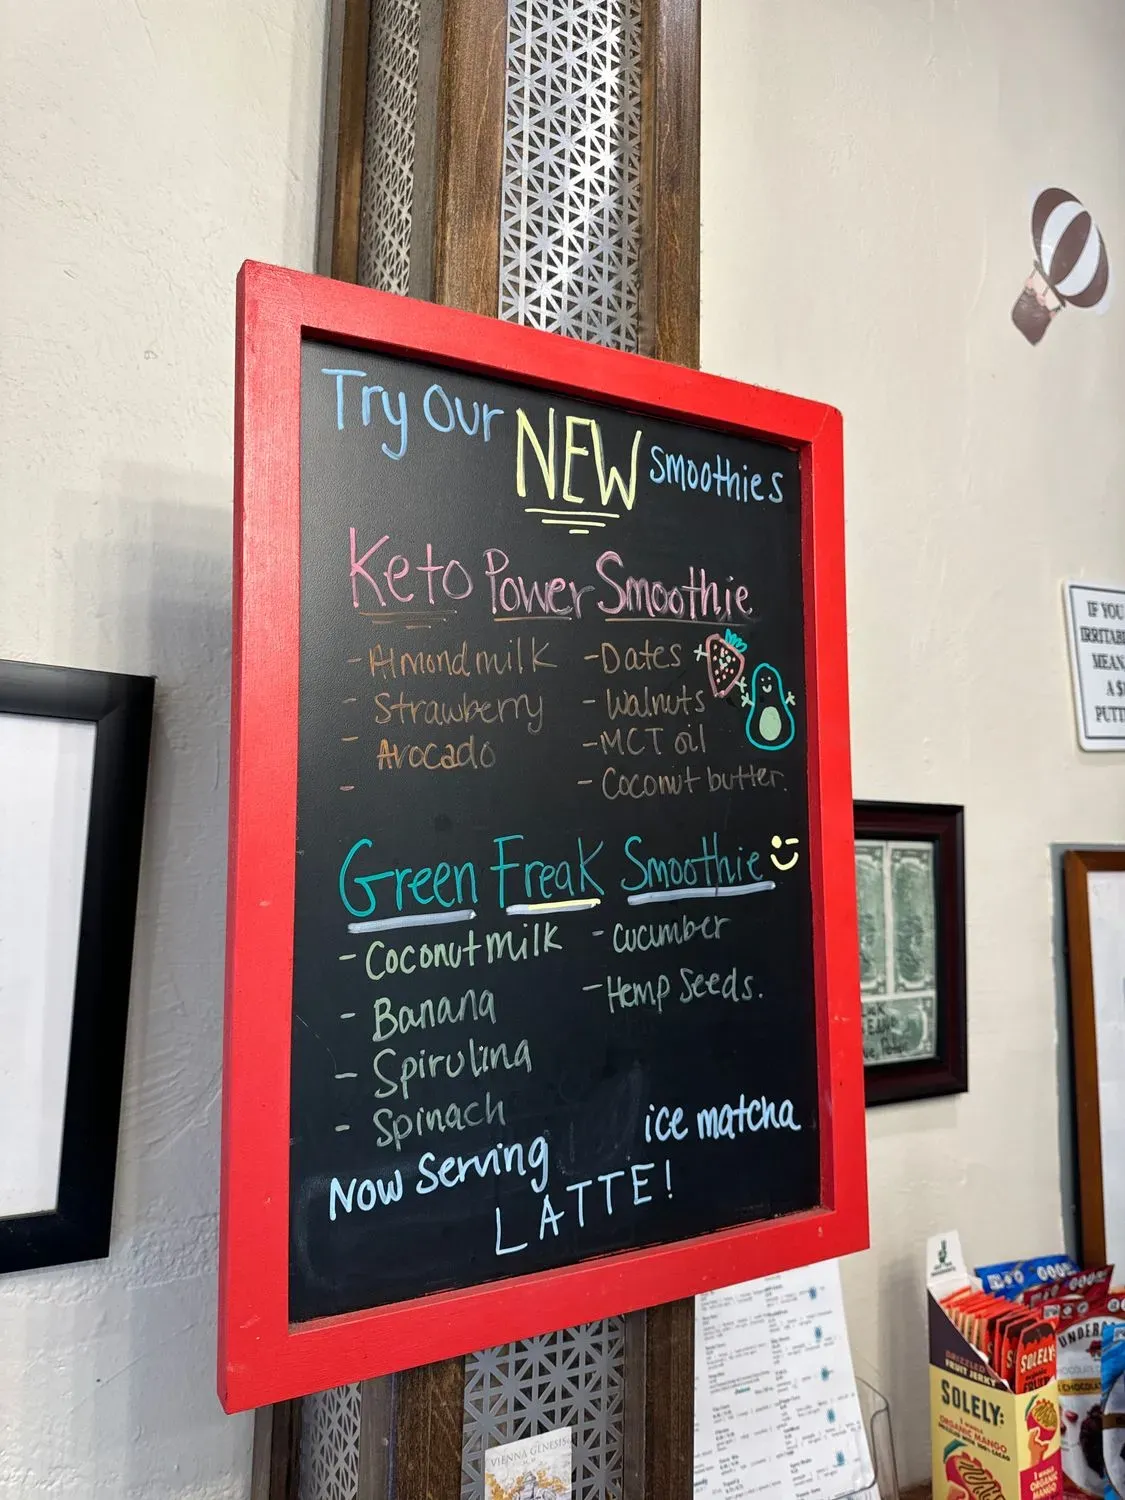 Try Our NEW smoothies
Keto Power Smoothie
- Almond milk
- Strawberry
- Avocado
-
- Dates
- Walnuts
- MCT oil
- Coconut butter.
Green Freak Smoothie
- Coconut milk
- Banana
- Spirulina
- Spinach
- cucumber
- Hemp Seeds.
Now Serving ice matcha
LATTE!
IF YOU
IRRITAB
MEAN
A $
PUTT
VIENNA GENESIS
DRIZZLED
FRUIT JERKY
SOLELY:
ORGANIC MANGO
SOLELY
UNDER